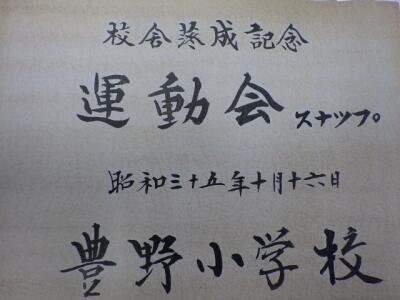 校舎落成記念
運動会 スナップ。
昭和三十五年十月十六日
豊野小学校